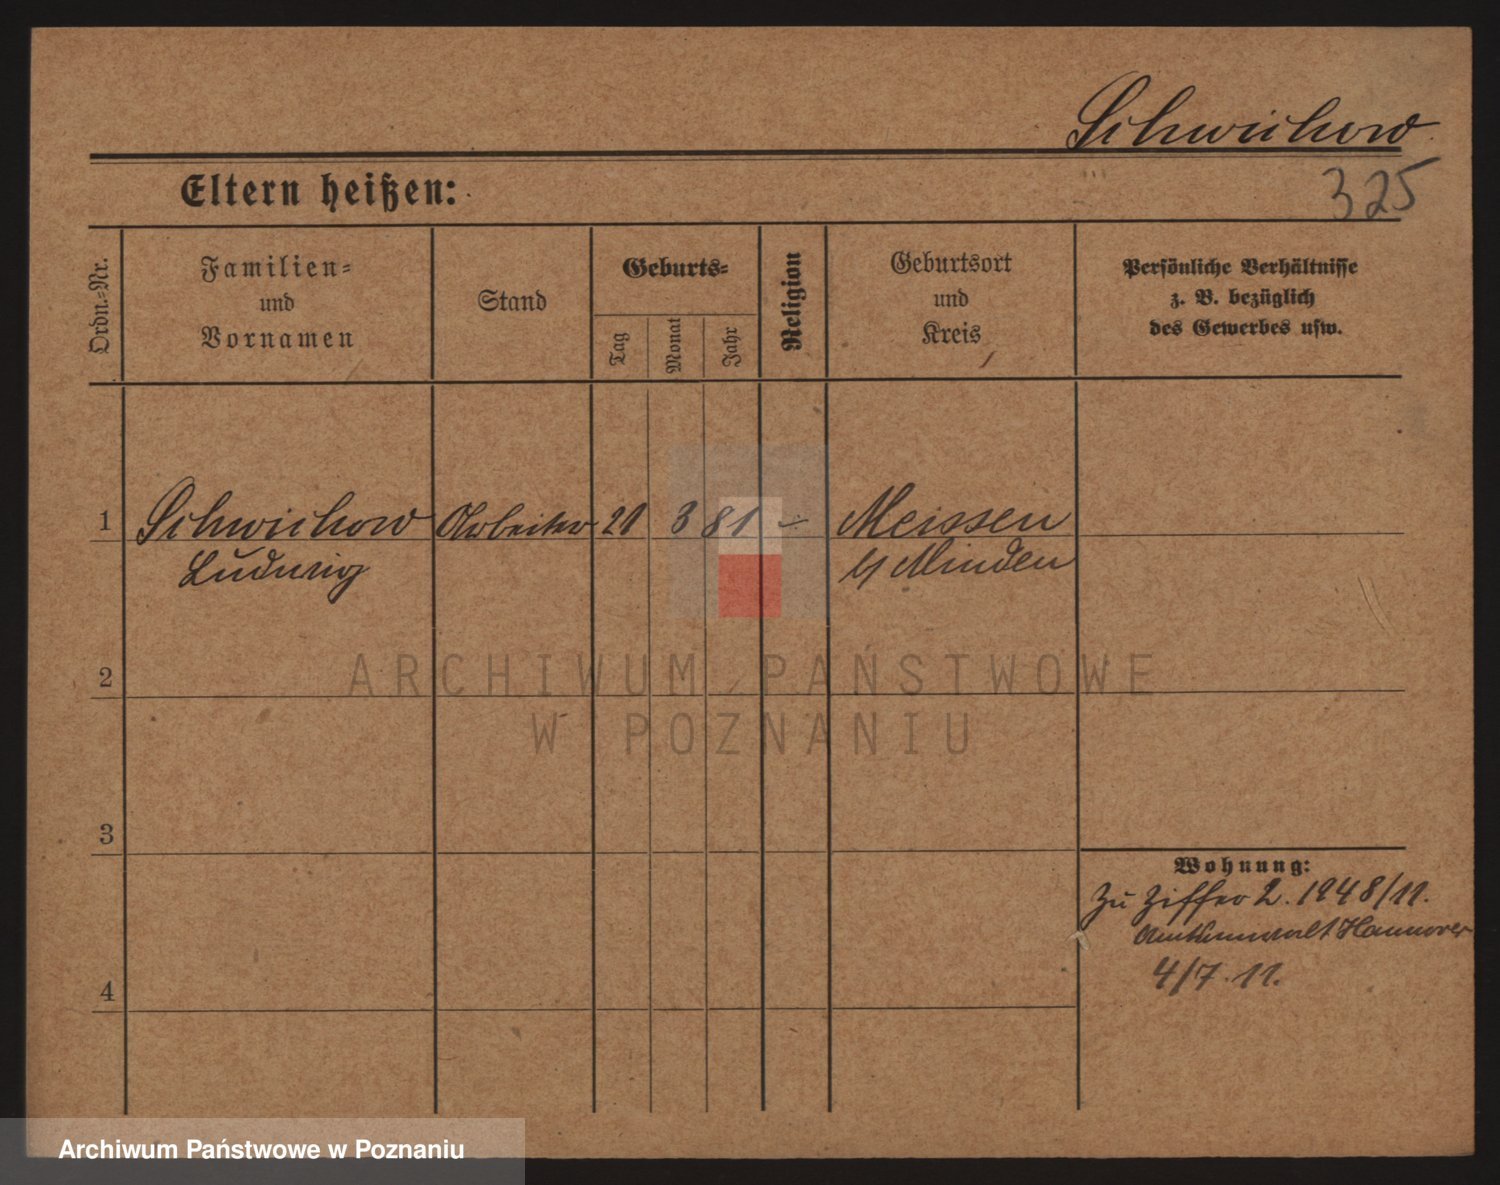 Schwichow
325
Eltern heißen:
Ordn.-Nr.
Familien-
und
Vornamen
Stand
Geburts-
Tag
Monat
Jahr
Religion
Geburtsort
und
Kreis
Persönliche Verhältnisse
z. B. bezüglich
des Gewerbes usw.
1
Schwichow Arbeiter 21 3 81 Meissen
Ludwig b/ Minden
2
3
4
Wohnung:
Zu Ziffer 2. 1948/11.
Amtsanwalt Hannover
4/7. 11.
ARCHIWUM PAŃSTWOWE
W POZNANIU
Archiwum Państwowe w Poznaniu